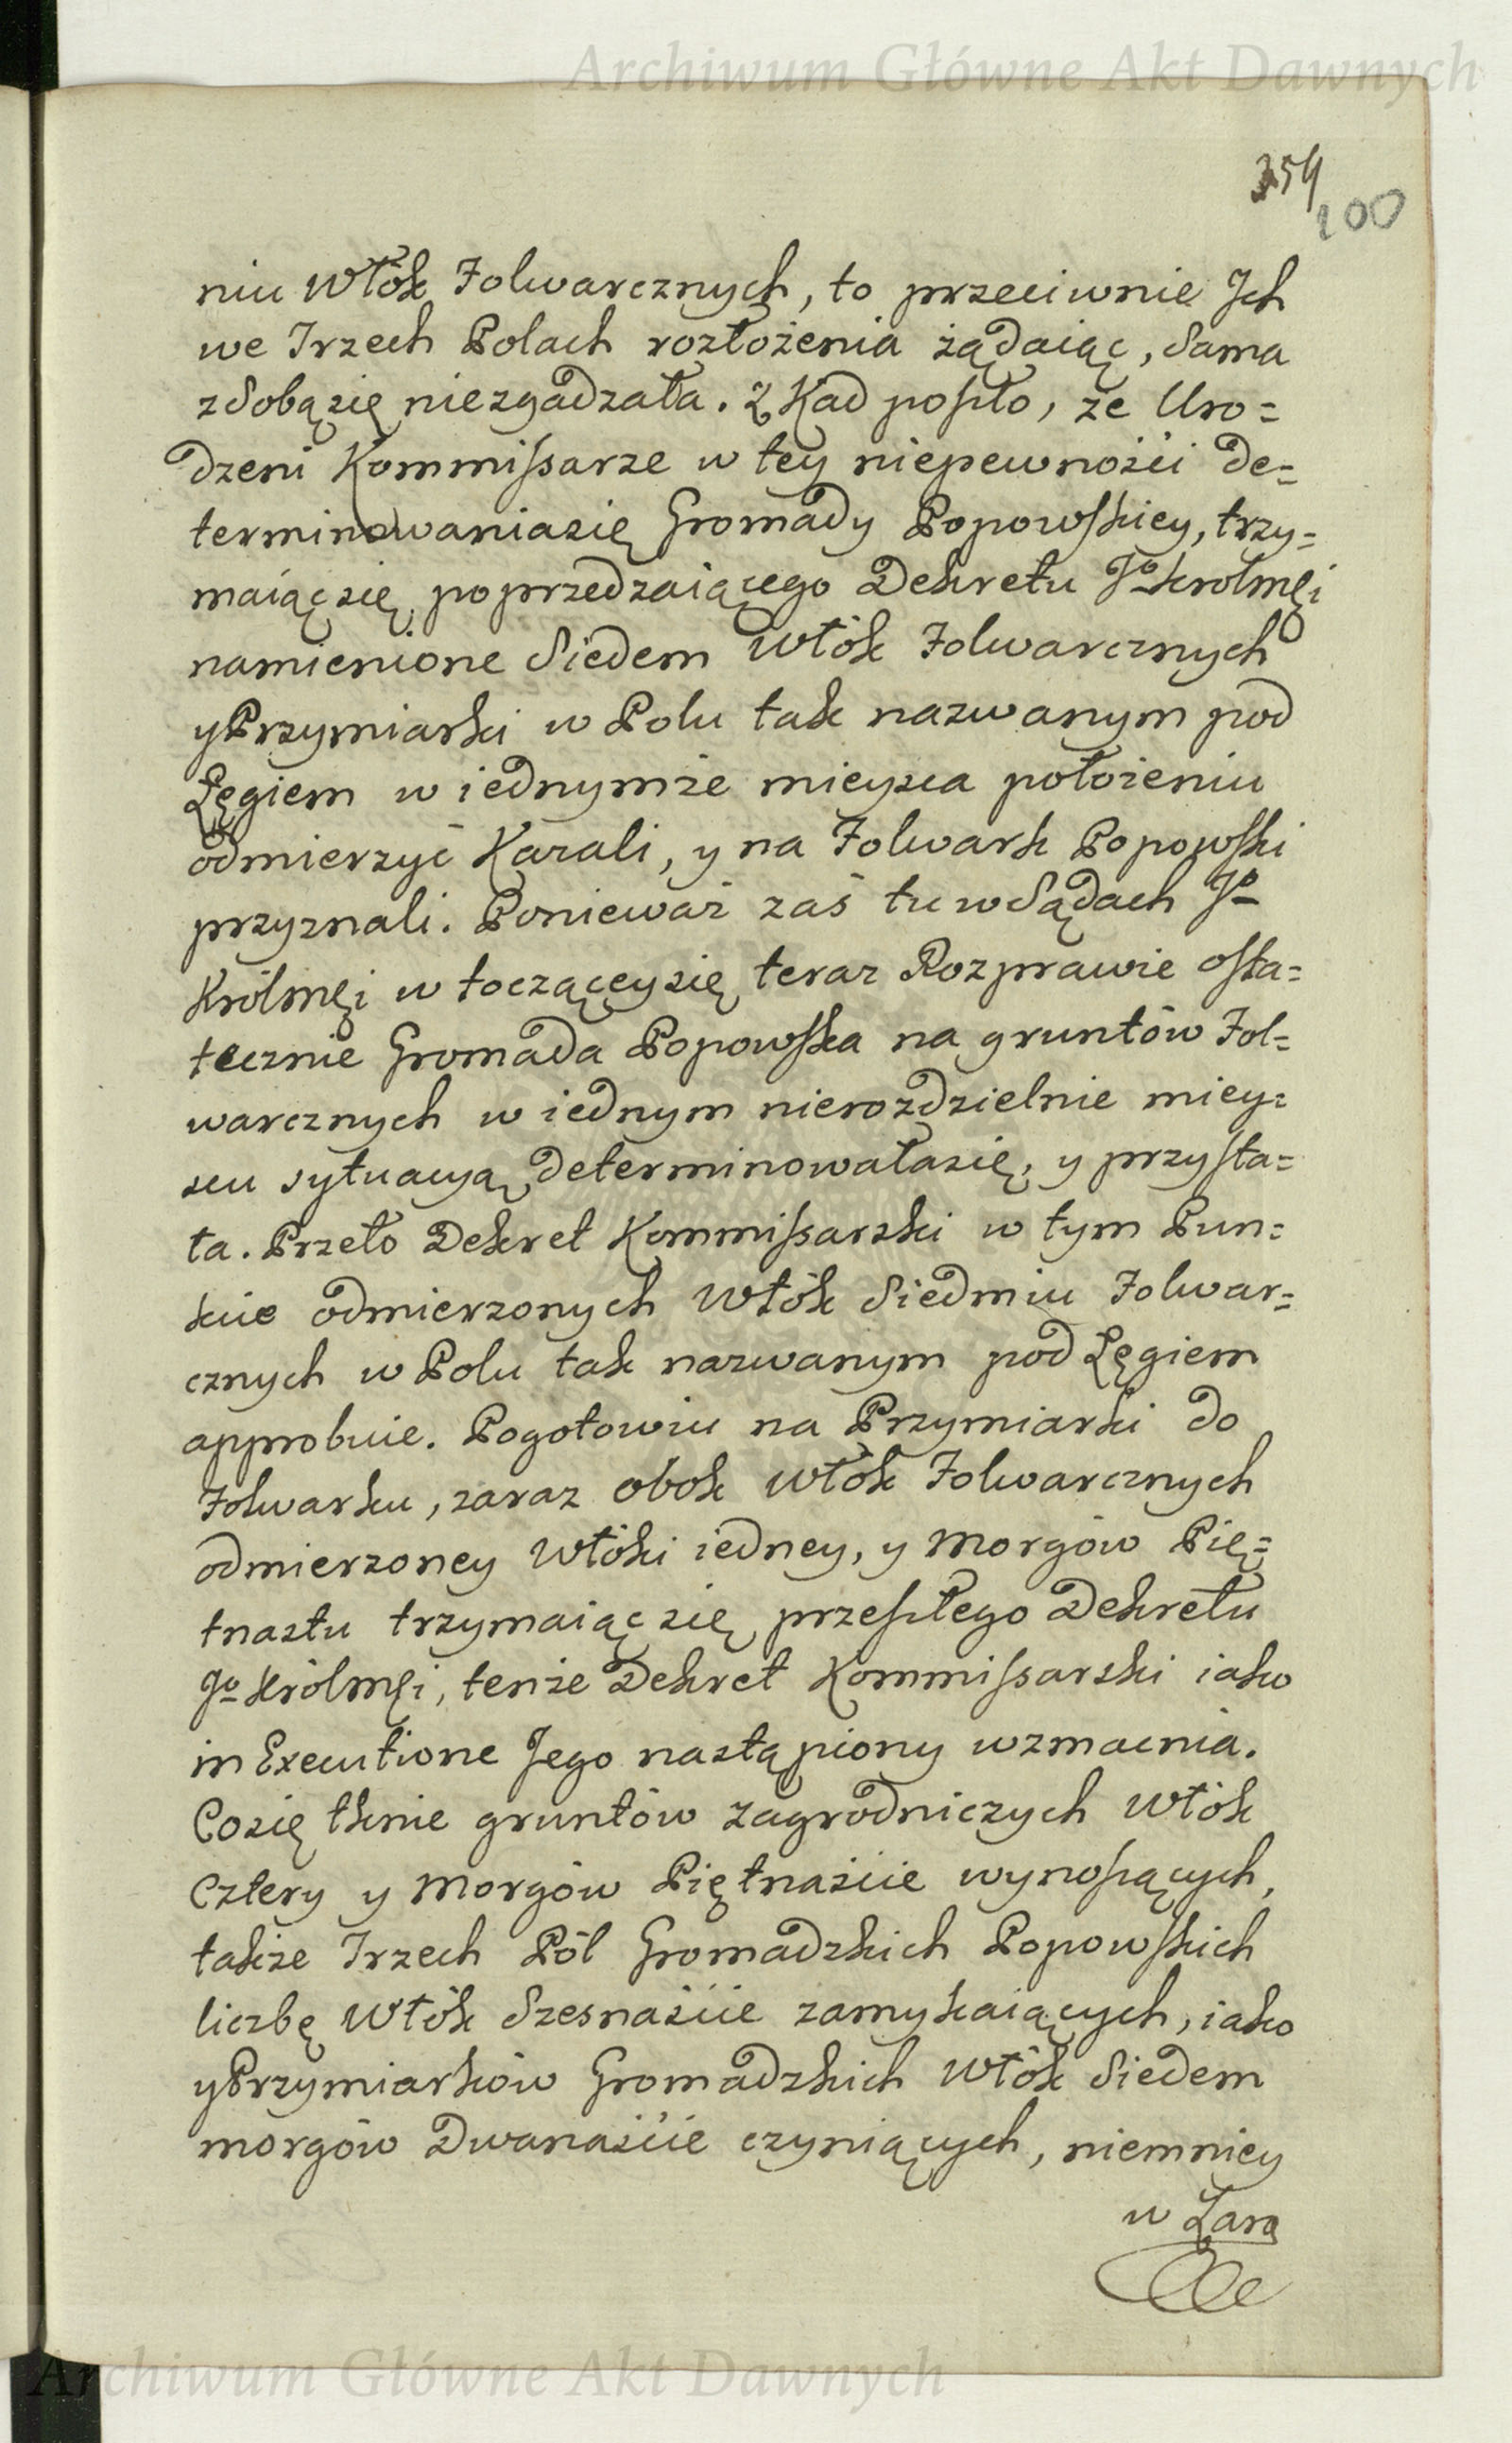 Archiwum Główne Akt Dawnych
354
100
niu Włók Folwarcznych, to przeciwnie Jch
we Trzech Polach rozłożenia żądaiąc, Sama
z Sobą się niezgadzała. Z Kąd poszło, że Uro=
dzeni Kommissarze w tey niepewności de=
terminowania się Gromady Popowskiey, trzy=
maiąc się poprzedzaiącego Dekretu Jº Krolmći
namienione Siedem Włók Folwarcznych
y Przymiarki w Polu tak nazwanym pod
Łęgiem w iednymże mieysca położeniu
odmierzyć Kazali, y na Folwark Popowski
przyznali. Ponieważ zaś tu w Sądach Jº
Królmći w toczącey się teraz Rozprawie osta=
tecznie Gromada Popowska na gruntów Fol=
warcznych w iednym nierozdzielnie miey=
scu sytuacyą determinowała się, y przysta=
ła. Przeto Dekret Kommissarski w tym Pun=
kcie odmierzonych Włók Siedmiu Folwar=
cznych w Polu tak nazwanym pod Łęgiem
approbuie. Pogotowiu na Przymiarki do
Folwarku, zaraz obok Włók Folwarcznych
odmierzoney Włóki iedney, y Morgów Pię=
tnastu trzymaiąc się przeszłego Dekretu
Jº Królmći, tenże Dekret Kommissarski iako
in Executione Jego nastąpiony wzmacnia.
Co się tknie gruntów Zagrodniczych Włók
Cztery y Morgów Piętnaście wynoszących,
także Trzech Pól Gromadzkich Popowskich
liczbę Włók Szesnaście zamykaiących, iako
y Przymiarków Gromadzkich Włók Siedem
morgów Dwanaście czyniących, niemniey
w Łąrą
Archiwum Główne Akt Dawnych